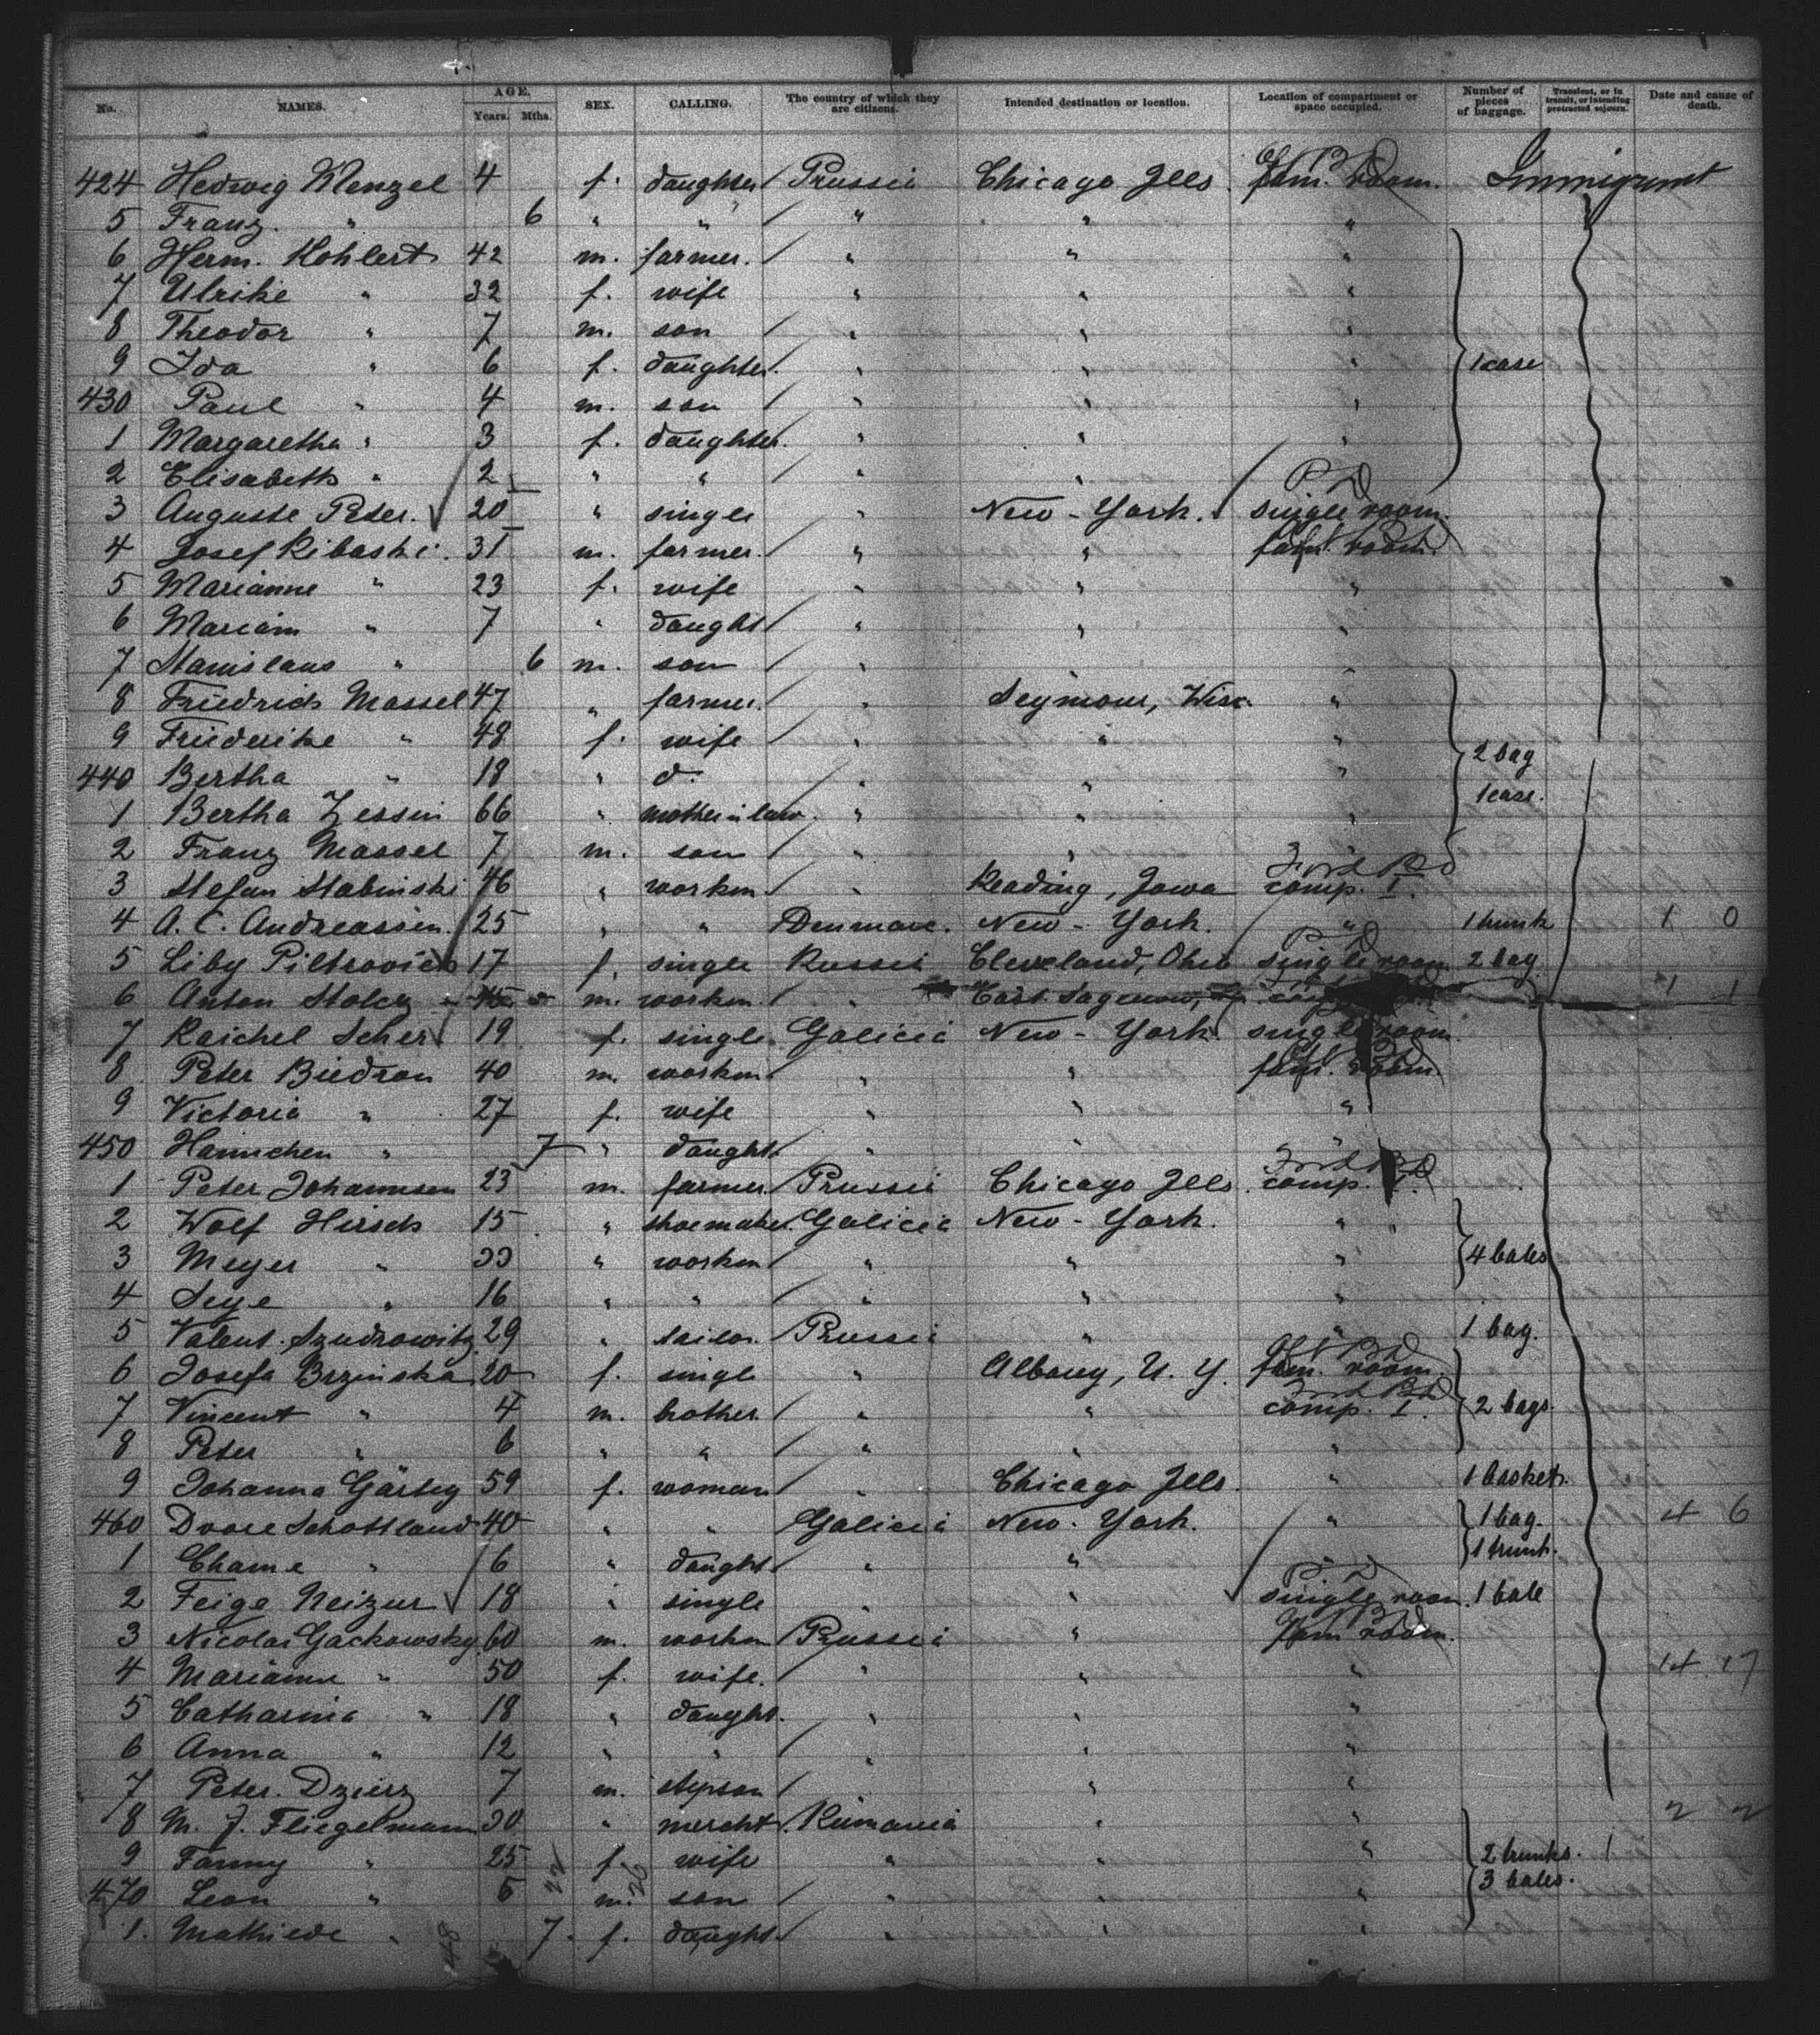 No. NAMES. AGE. Years. Mths. SEX. CALLING. The country of which they are citizens. Intended destination or location. Location of compartment or space occupied. Number of pieces of baggage. Transient, or in transit, or intending protracted sojourn. Date and cause of death.
424 Hedwig Menzel 4 f. daughter Prussia Chicago Ills. fam. room. Immigrant
5 Franz " 6 " " " " "
6 Herm. Kohlert 42 m. farmer. " " "
7 Ulrike " 32 f. wife " " "
8 Theodor " 7 m. son " " "
9 Ida " 6 f. daughter. " " " 1 case
430 Paul " 4 m. son " " "
1 Margaretha " 3 f. daughter. " " "
2 Elisabeth " 2 " " " "
3 Auguste Peter. 20 " single " New-York. single room.
4 Josef Ribashi. 31 m. farmer. " " fam. room.
5 Marianne " 23 f. wife " " "
6 Mariam " 7 " daught " " "
7 Stanislaus " 6 m. son " " "
8 Friedrich Massel 47 " farmer. " Seymour, Wisc. "
9 Friederike " 48 f. wife " " " 2 bag
440 Bertha " 18 " d. " " " 1 case.
1 Bertha Zessin 66 " mother in law. " " "
2 Franz Massel 7 m. son " " "
3 Stefan Stabinski 46 " workm " Reading, Iowa comp. I.
4 A. C. Andreassen. 25 " " Denmark. New-York. " 1 trunk 1 0
5 Liby Piltrovich 17 f. single Russia Cleveland, Ohio single room 2 bag
6 Anton Stolcz m. workm. " East Sagenow, 1 1
7 Raichel Scher 19 f. single Galicia New-York. single room.
8 Peter Biedron 40 m. workm " " fam. room.
9 Victoria " 27 f. wife " " "
450 Hannchen " 7 " daught. " " "
1 Peter Johannsen 23 m. farmer. Prussia Chicago Ills. comp. I.
2 Wolf Hirsch 15 " shoemaker. Galicia New-York. "
3 Meyer " 33 " workm " " " 4 bales
4 Seye " 16 " " " " "
5 Valent. Szudrowitz 29 " tailor. Prussia " " 1 bag.
6 Josefa Brzinska 20 f. single " Albany, N. Y. fam. room
7 Vincent " 4 m. brother. " " comp. I. 2 bags.
8 Peter " 6 " " " " "
9 Johanna Gärtig 59 f. woman " Chicago Ills. " 1 basket.
460 Dvore Schottland 40 " " Galicia New-York. " 1 bag. 4 6
1 Chame " 6 " daught " " " 1 trunk.
2 Feige Neizur 18 " single " " single room. 1 bale
3 Nicolai Gackowsky 60 m. workm Prussia " fam. room.
4 Marianne " 50 f. wife. " " " 14 17
5 Catharina " 18 " daught. " " "
6 Anna " 12 " " " " "
7 Peter Dzierz 7 m. stepson " " "
8 M. J. Fliegelmann 30 " mercht. Rumania " " 2 2
9 Fanny " 25 f. wife " " " 2 trunks.
470 Leon " 6 m. son " " " 3 bales.
1. Mathilde " 7. f. daught. " " "
48 22 26